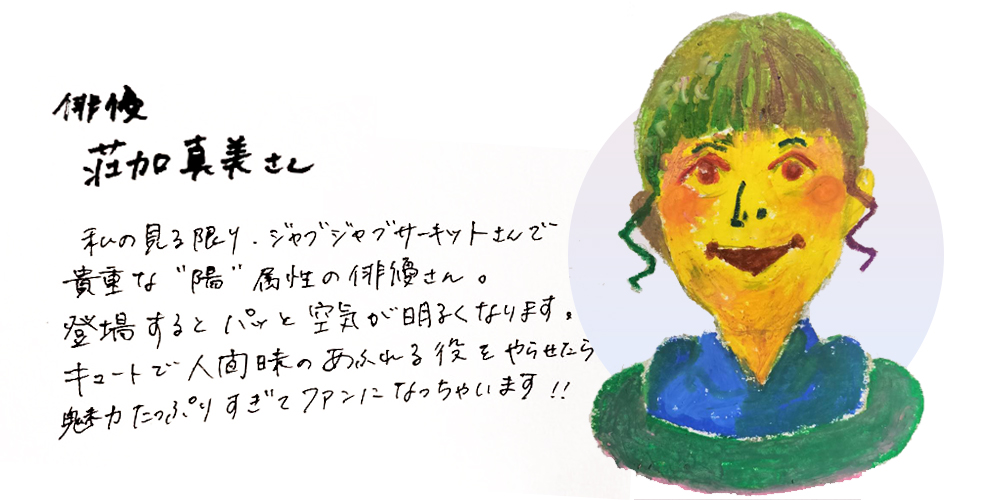 俳優
荘加真美さん
私の見る限り、ジャブジャブサーキットさんで
貴重な"陽"属性の俳優さん。
登場するとパッと空気が明るくなります。
キュートで人間味のあふれる役をやらせたら
魅力たっぷりすぎてファンになっちゃいます!!